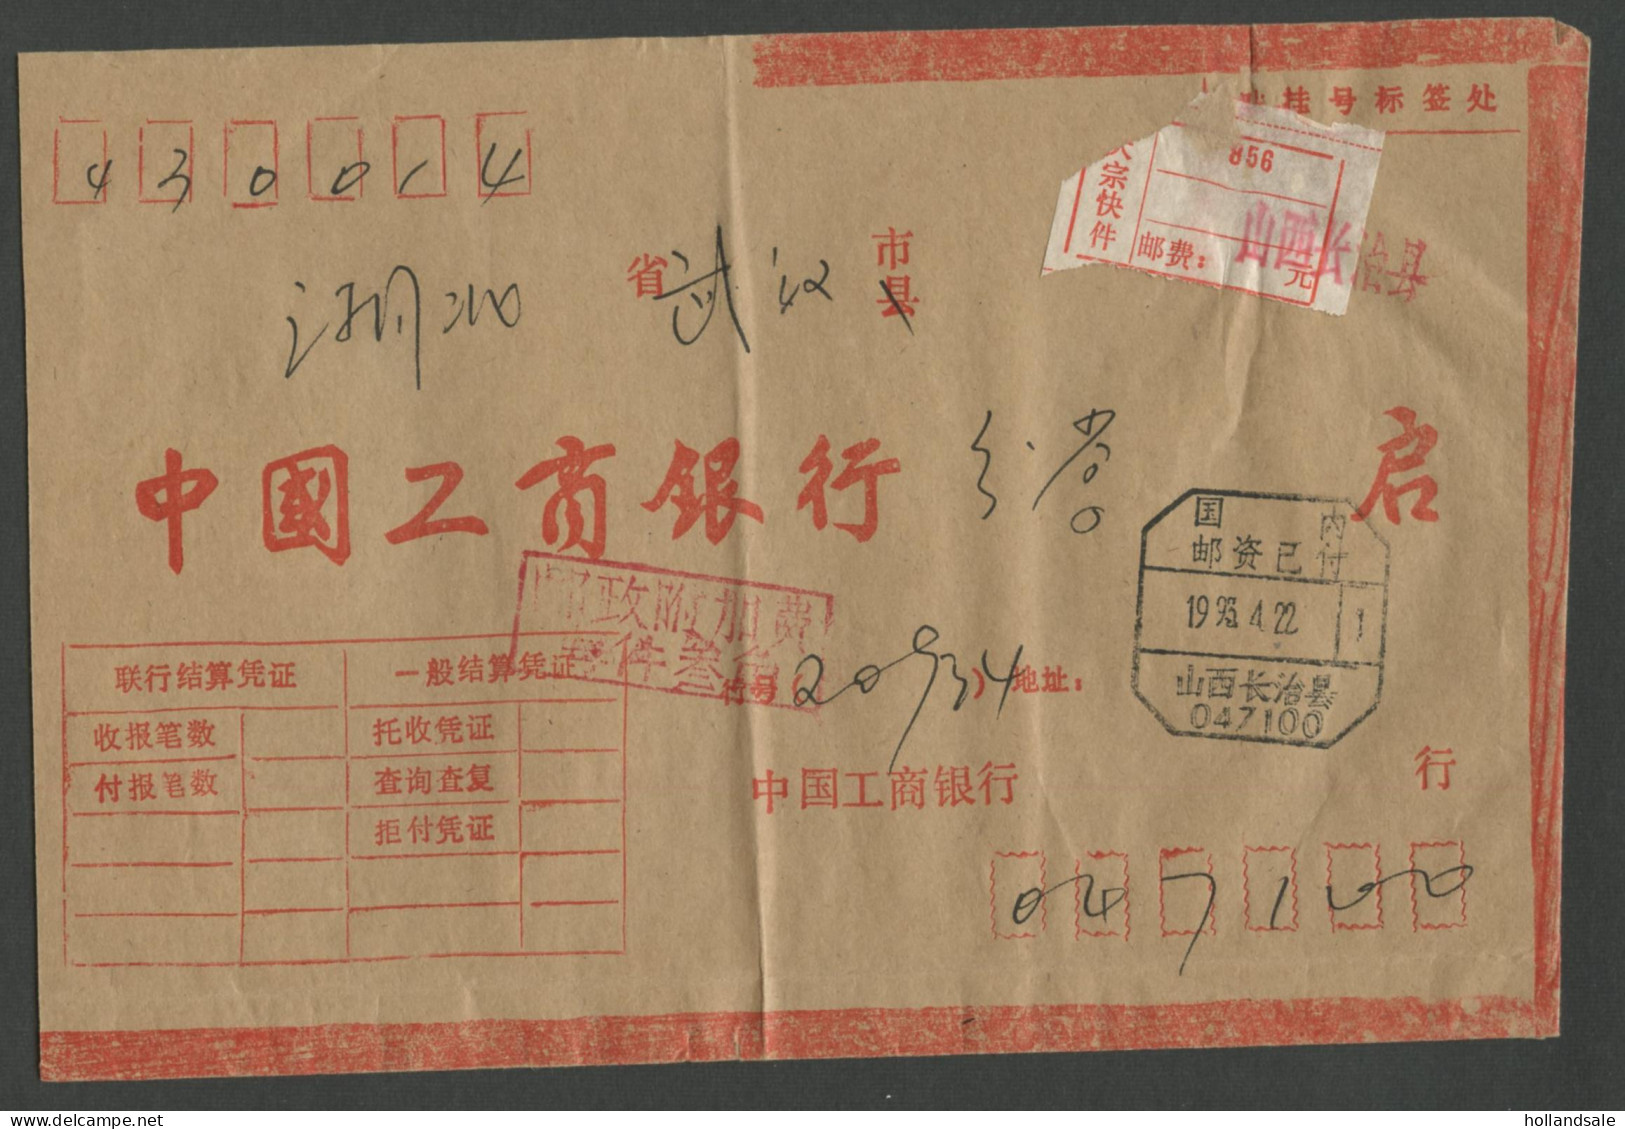 挂号标签处
430014
856
大宗快件
邮费： 元
山西长治县
湖北 省 武汉 市县
中國工商銀行 启
国内
邮资已付
1993.4.22 1
山西长治县
047100
邮政附加费
每件叁角
行号( ) 地址：
联行结算凭证 一般结算凭证
收报笔数 托收凭证
付报笔数 查询查复
拒付凭证
中国工商银行 行
047100
hollandsale